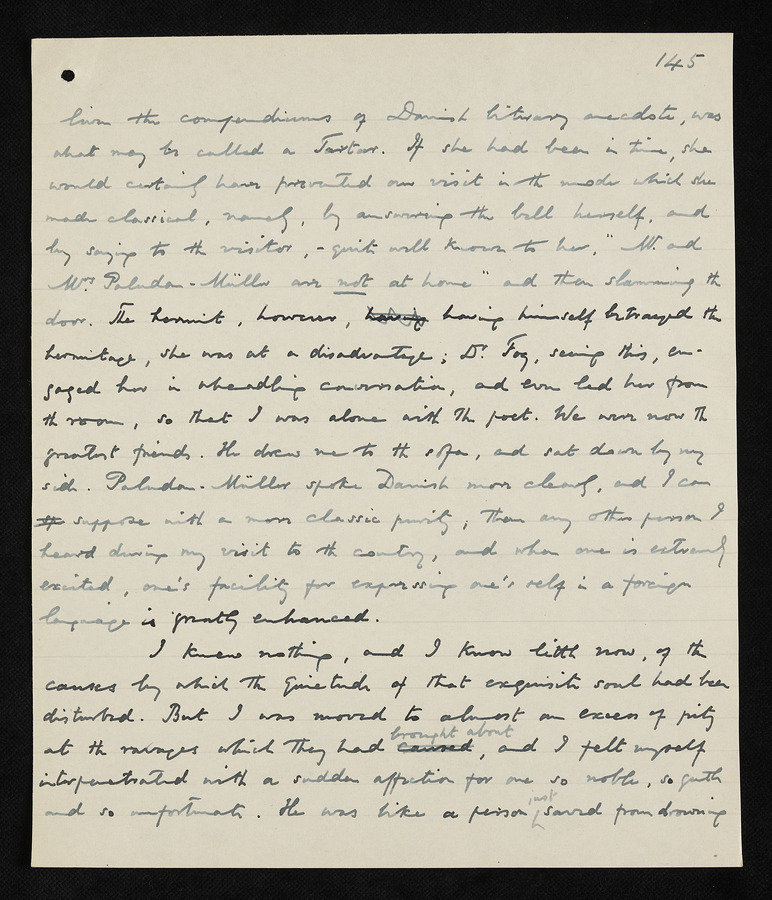 145
liven the compendiums of Danish literary anecdote, was
what may be called a Tartar. If she had been in time, she
would certainly have prevented our visit in the mode which she
made classical, namely, by answering the bell herself, and
by saying to the visitor, - quite well known to her, "Mr. and
Mrs Paludan-Müller are not at home" and then slamming the
door. The hermit, however, having himself betrayed the
hermitage, she was at a disadvantage; Dr. Fog, seeing this, en-
gaged her in wheedling conversation, and even led her from
the room, so that I was alone with the poet. We were now the
greatest friends. He drew me to the sofa, and sat down by my
side. Paludan-Müller spoke Danish more clearly, and I can
suppose with a more classic purity, than any other person I
heard during my visit to the country, and when one is extremely
excited, one's facility for expressing one's self in a foreign
language is greatly enhanced.
I knew nothing, and I know little now, of the
causes by which the quietude of that exquisite soul had been
disturbed. But I was moved to almost an excess of pity
at the ravages which they had caused brought about, and I felt myself
interpenetrated with a sudden affection for one so noble, so gentle
and so unfortunate. He was like a person just saved from drowning